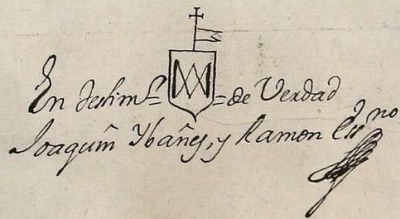 En testim.º = de Verdad
Joaquin Ybañes, y Ramon Es.no